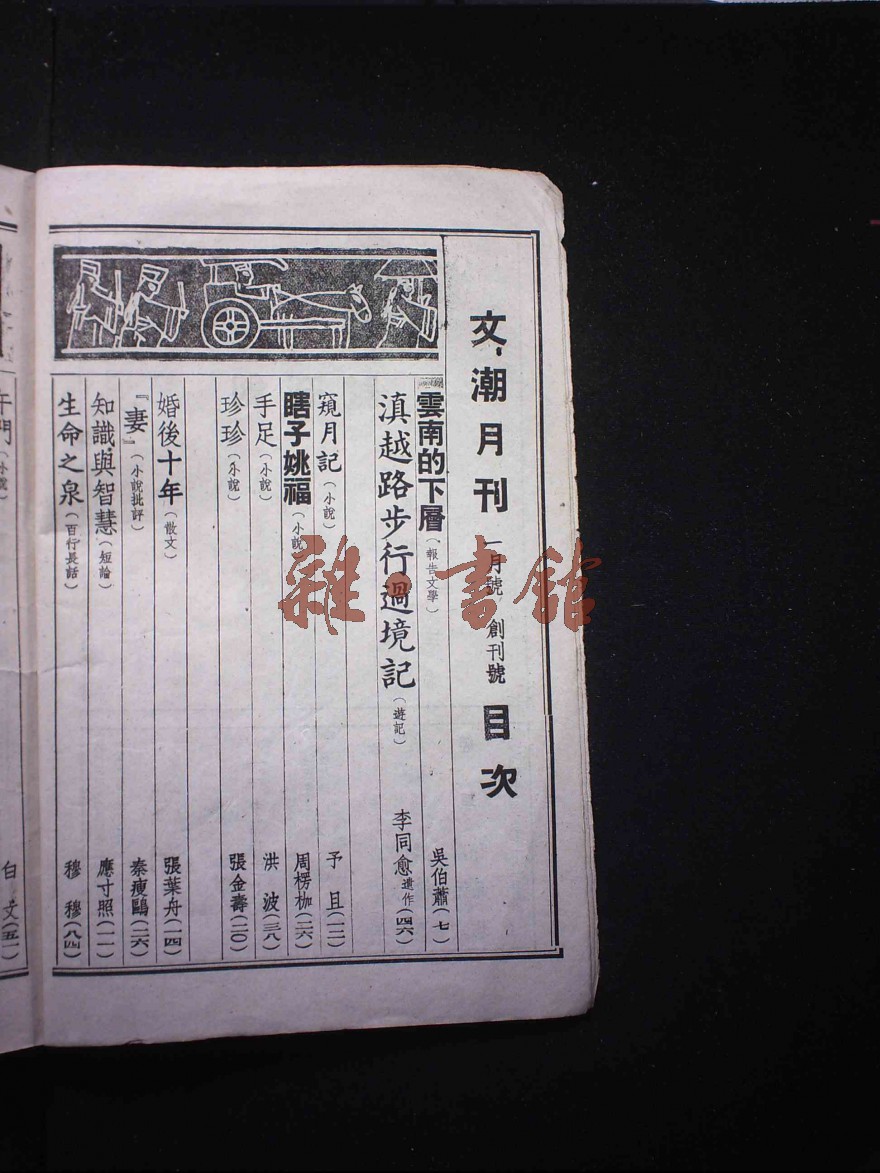 文潮月刊 一月號 創刊號 目次
雲南的下層（報告文學） 吳伯蕭（七）
滇越路步行過境記（遊記） 李同愈遺作（四六）
窺月記（小說） 予且（一二）
瞎子姚福（小說） 周楞枷（二六）
手足（小說） 洪波（三八）
珍珍（小說） 張金壽（二〇）
婚後十年（散文） 張葉舟（一四）
『妻』（小說批評） 秦瘦鷗（二六）
知識與智慧（短論） 應寸照（一一）
生命之泉（百行長話） 穆穆（八四）
午門（小說） 白文（五一）
雜·書館